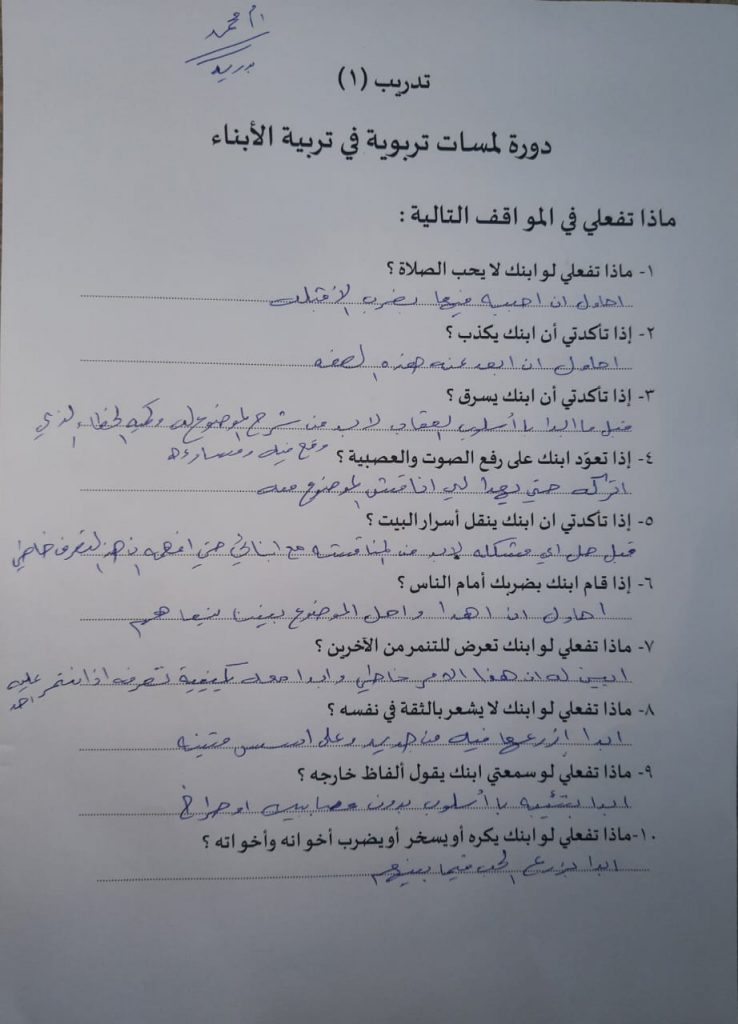 ام محمد
بوريد
تدريب (١)
دورة لمسات تربوية في تربية الأبناء
ماذا تفعلي في المواقف التالية :
١- ماذا تفعلي لو ابنك لا يحب الصلاة ؟
احاول ان احببه فيها بضرب الا
٢- إذا تأكدتي أن ابنك يكذب ؟
احاول ان ابعد عنه هذه الصفه
٣- إذا تأكدتي أن ابنك يسرق ؟
قبل ما ابدا با أسلوب العقاب لا بد من شرح الموضوع له الخطاء الذي
وقع فيه
٤- إذا تعوّد ابنك على رفع الصوت والعصبية ؟
اتركه حتي يهدا لي اناقش الموضوع معه
٥- إذا تأكدتي ان ابنك ينقل أسرار البيت ؟
قبل حل اي مشكله لابد من المناقشه مع ابنائي حتي افهمه ان هذا التصرف خاطئ
٦- إذا قام ابنك بضربك أمام الناس ؟
احاول ان اهدا و احل الموضوع بيننا
٧- ماذا تفعلي لو ابنك تعرض للتنمر من الآخرين ؟
ابين له ان هذا الامر خاطئ وابدا معه بكيفية تصرفه اذا تنمر عليه
احد
٨- ماذا تفعلي لو ابنك لا يشعر بالثقة في نفسه ؟
ابدا ازرعها فيه من جديد وعلى اسس متينه
٩- ماذا تفعلي لو سمعتي ابنك يقول ألفاظ خارجه ؟
ابدا با أسلوب بدون عصابيه او صراخ
١٠-ماذا تفعلي لو ابنك يكره أو يسخر أو يضرب أخوانه وأخواته ؟
ابدا بزرع الحب فيما بينهم